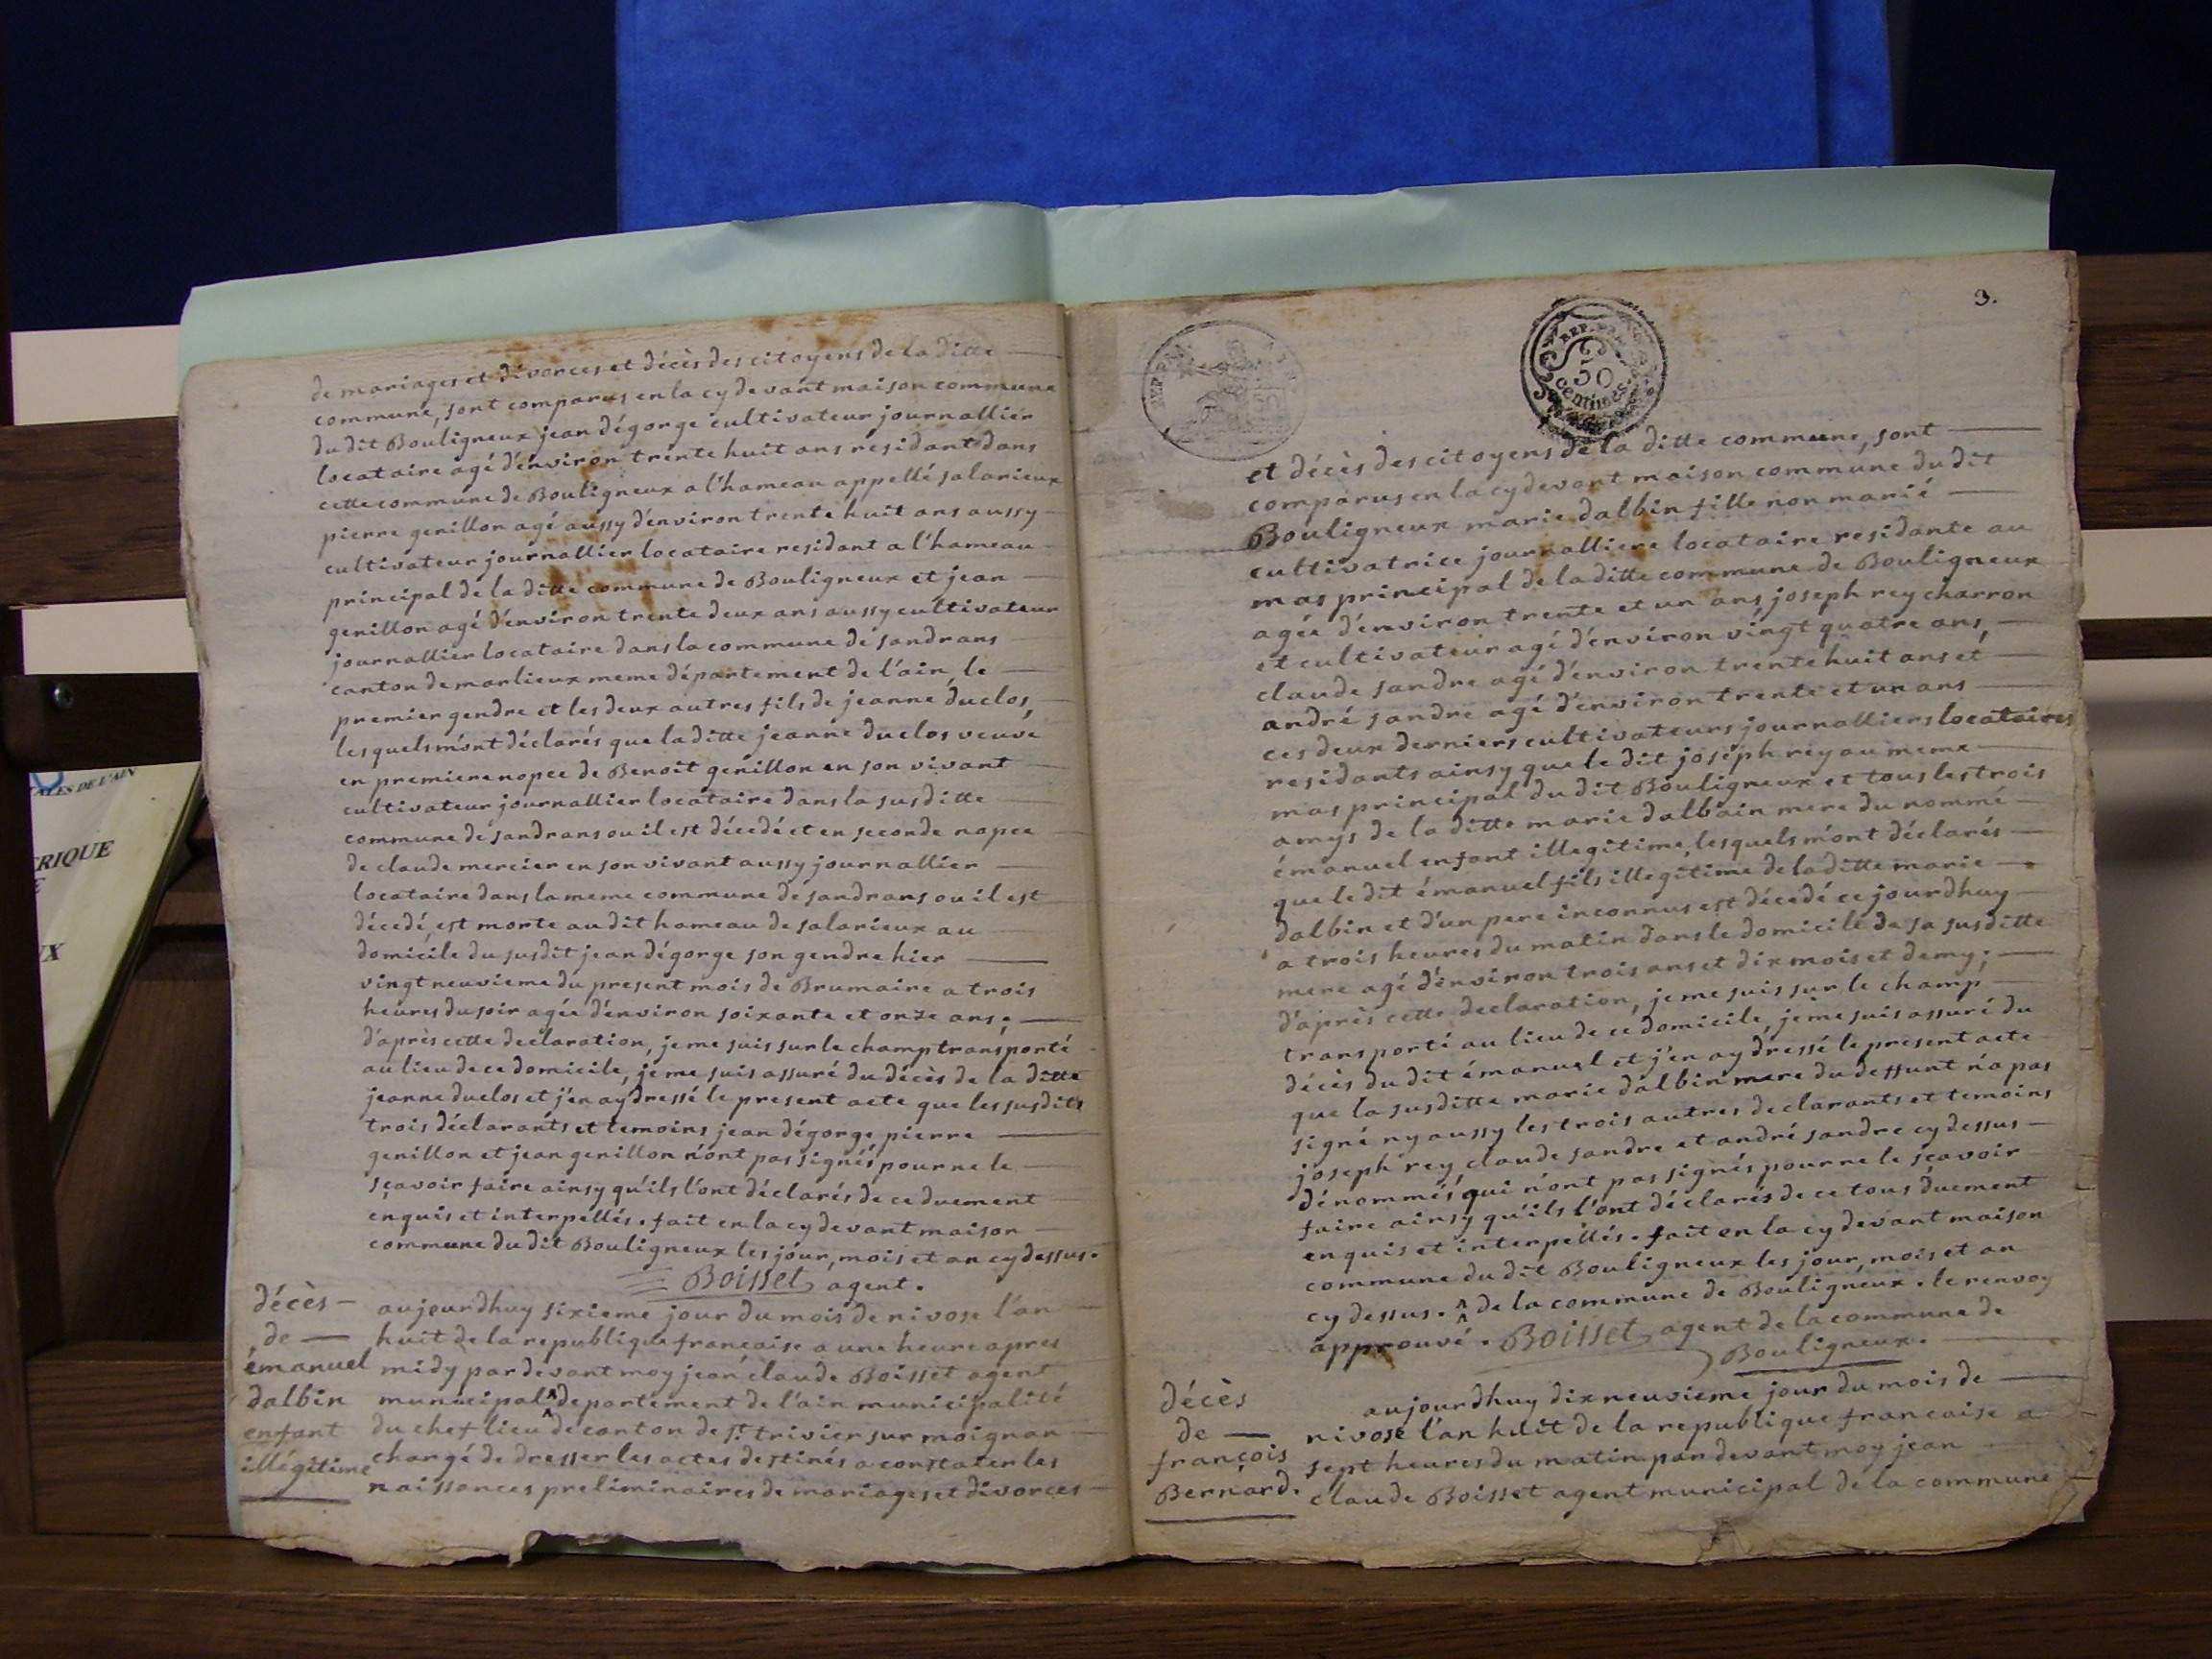 de mariages et divorces et décès des citoyens de la ditte
commune, sont comparus en la cy devant maison commune
du dit Bouligneux jean dégorge cultivateur journallier
locataire agé d'environ trente huit ans residant dans
cette commune de Bouligneux a l'hameau appellé salarieux
pierre genillon agé aussy d'environ trente huit ans aussy
cultivateur journallier locataire residant a l'hameau
principal de la ditte commune de Bouligneux et jean
genillon agé d'environ trente deux ans aussy cultivateur
journallier locataire dans la commune de sandrans
canton de marlieux meme département de l'ain, le
premier gendre et les deux autres fils de jeanne duclos,
lesquels m'ont déclarés que la ditte jeanne duclos veuve
en premiere nopce de Benoit genillon en son vivant
cultivateur journallier locataire dans la susditte
commune de sandrans ou il est décedé et en seconde nopce
de claude mercier en son vivant aussy journallier
locataire dans la meme commune de sandrans ou il est
décedé, est morte au dit hameau de salarieux au
domicile du susdit jean dégorge son gendre hier
vingt neuvieme du present mois de Brumaire a trois
heures du soir agée d'environ soixante et onze ans;
d'après cette declaration, je me suis sur le champ transporté
au lieu de ce domicile, je me suis assuré du décès de la ditte
jeanne duclos et j'en ay dressé le present acte que les susdits
trois déclarants et temoins jean dégorge, pierre
genillon et jean genillon n'ont pas signés pour ne le
sçavoir faire ainsy qu'ils l'ont déclarés de ce duement
enquis et interpellés. fait en la cy devant maison
commune du dit Bouligneux les jour, mois et an cy dessus.
Boisset agent.
décès
de
émanuel
dalbin
enfant
illégitime
aujourdhuy sixieme jour du mois de nivose l'an
huit de la republique francaise a une heure apres
midy pardevant moy jean claude Boisset agent
municipal ^ departement de l'ain municipalité
du chef lieu de canton de st. trivier sur moignan
chargé de dresser les actes destinés a constater les
naissances preliminaires de mariages et divorces
3.
REP. FRA
REP. FRA
50
centimes
et décès des citoyens de la ditte commune, sont
comparus en la cy devant maison commune du dit
Bouligneux marie dalbin fille non marié
cultivatrice journalliere locataire residante au
mas principal de la ditte commune de Bouligneux
agée d'environ trente et un ans, joseph rey charron
et cultivateur agé d'environ vingt quatre ans,
claude sandre agé d'environ trente huit ans et
andré sandre agé d'environ trente et un ans
ces deux derniers cultivateurs journalliers locataires
residants ainsy que le dit joseph rey au meme
mas principal du dit Bouligneux et tous les trois
amys de la ditte marie dalbain mere du nommé
émanuel enfant illegitime, lesquels m'ont déclarés
que le dit émanuel fils illegitime de la ditte marie
dalbin et d'un pere inconnus est décedé ce jourdhuy
a trois heures du matin dans le domicile de sa susditte
mere agé d'environ trois ans et dix mois et demy;
d'après cette declaration, je me suis sur le champ
transporté au lieu de ce domicile, je me suis assuré du
décès du dit émanuel et j'en ay dressé le present acte
que la susditte marie dalbin mere du deffunt n'a pas
signé ny aussy les trois autres declarants et temoins
joseph rey claude sandre et andré sandre cy dessus
dénommés qui n'ont pas signés pour ne le sçavoir
faire ainsy qu'ils l'ont déclarés de ce tous duement
enquis et interpellés. fait en la cy devant maison
commune du dit Bouligneux les jour, mois et an
cy dessus. ^ de la commune de Bouligneux. le renvoy
approuvé. Boisset agent de la commune de
Bouligneux.
décès
de
françois
Bernard.
aujourdhuy dix neuvieme jour du mois de
nivose l'an huit de la republique francaise a
sept heures du matin pardevant moy jean
claude Boisset agent municipal de la commune
ALES DE L'AIN
RIQUE
E
UX